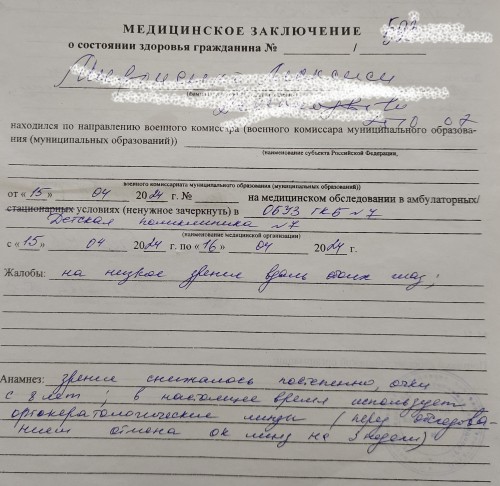 МЕДИЦИНСКОЕ ЗАКЛЮЧЕНИЕ
о состоянии здоровья гражданина № /
находился по направлению военного комиссара (военного комиссара муниципального образова-
ния (муниципальных образований))
(наименование субъекта Российской Федерации,
военного комиссариата муниципального образования (муниципальных образований))
от « 15 » 04 2024 г. № на медицинском обследовании в амбулаторных/
стационарных условиях (ненужное зачеркнуть) в ОБУЗ ГКБ №7
Детская поликлиника №7
(наименование медицинской организации)
с « 15 » 04 2024 г. по « 16 » 04 2024 г.
Жалобы: на низкое зрение вдаль обоих глаз;
Анамнез: зрение снижалось постепенно, очки
с 8 лет; в настоящее время использует
ортокератологические линзы (перед обследова-
нием отмена ок линз на 3 недели)